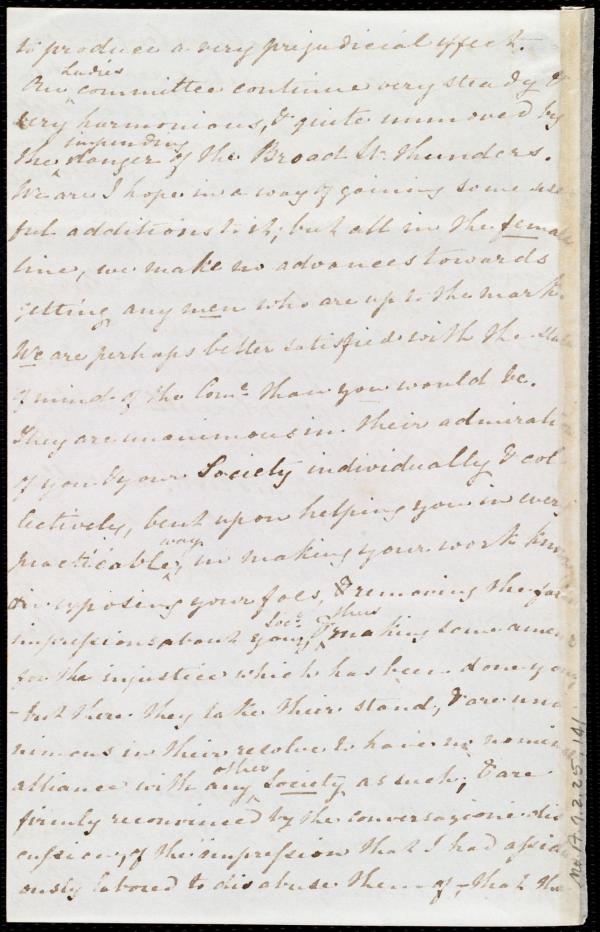 to produce a very prejudicial effect.
Our Ladies committee continue very steady &
very harmonious, & quite unmoved by
the impending danger of the Broad St. thunders.
We are I hope in a way of gaining some use
ful additions to it; but all in the female
line, we make no advances towards
getting any men who are up to the mark.
We are perhaps better satisfied with the state
of mind of the Come. than you would be.
They are unanimous in their admirati
of you & your Society individually & col
lectively, bent upon helping you in every
practicable way, in making your work known
in exposing your foes, & removing the false
impressions about your Socy. & thus making some amen
for the injustice which has been done you
- but there they take their stand, & are una
nimous in their resolve to have no nomin
alliance with any other Society as such, & are
firmly reconvinced by the conversazione dis
cussion, of the impression that I had assidu
ously labored to disabuse them of, that the
Ms.A.1.2.25.141